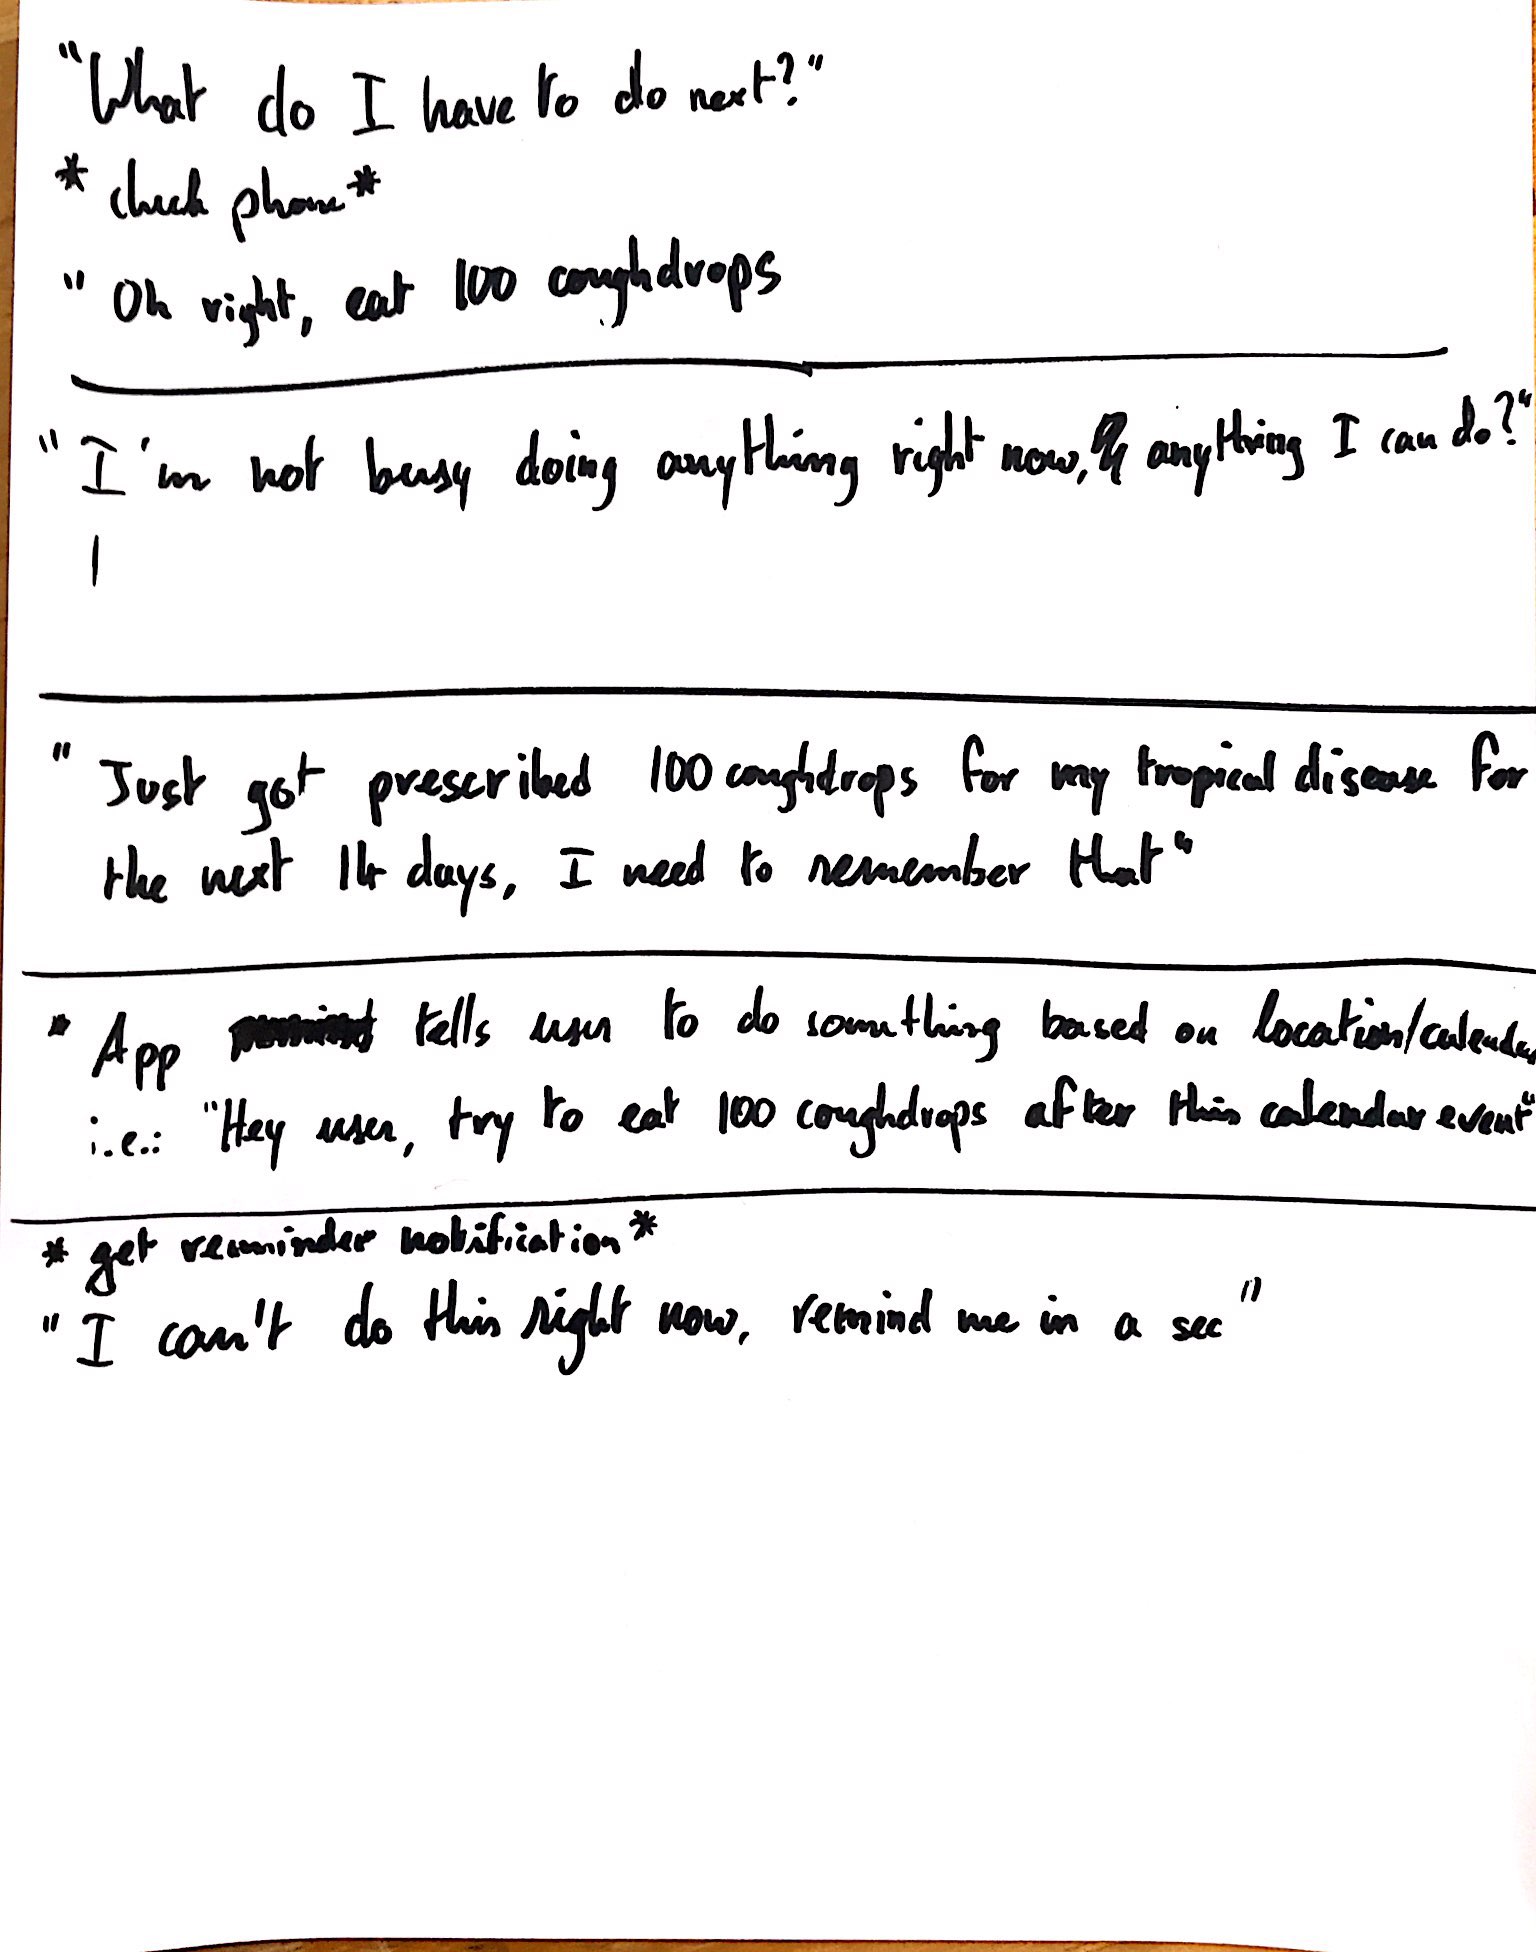 "What do I have to do next?"
* check phone *
"Oh right, eat 100 coughdrops
"I'm not busy doing anything right now, anything I can do?"
"Just got prescribed 100 coughdrops for my tropical disease for
the next 14 days, I need to remember that"
* App tells user to do something based on location/calendar
i.e.: "Hey user, try to eat 100 coughdrops after this calendar event"
* get reminder notification *
"I can't do this right now, remind me in a sec"